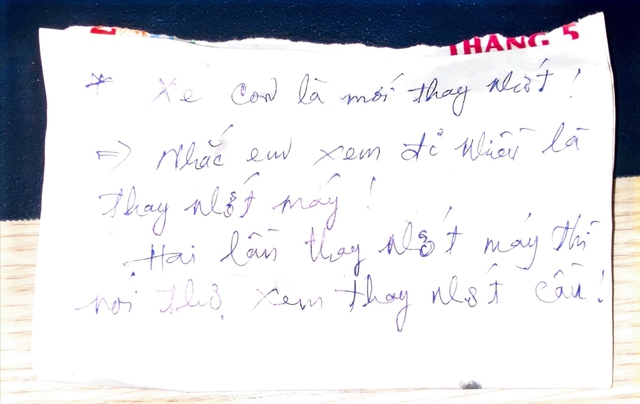 THÁNG 5
* Xe con là mới thay nhớt!
=> Nhắc em xem đi nhiều là
thay nhớt máy!
Hai lần thay nhớt máy thì
nói thợ xem thay nhớt cầu!